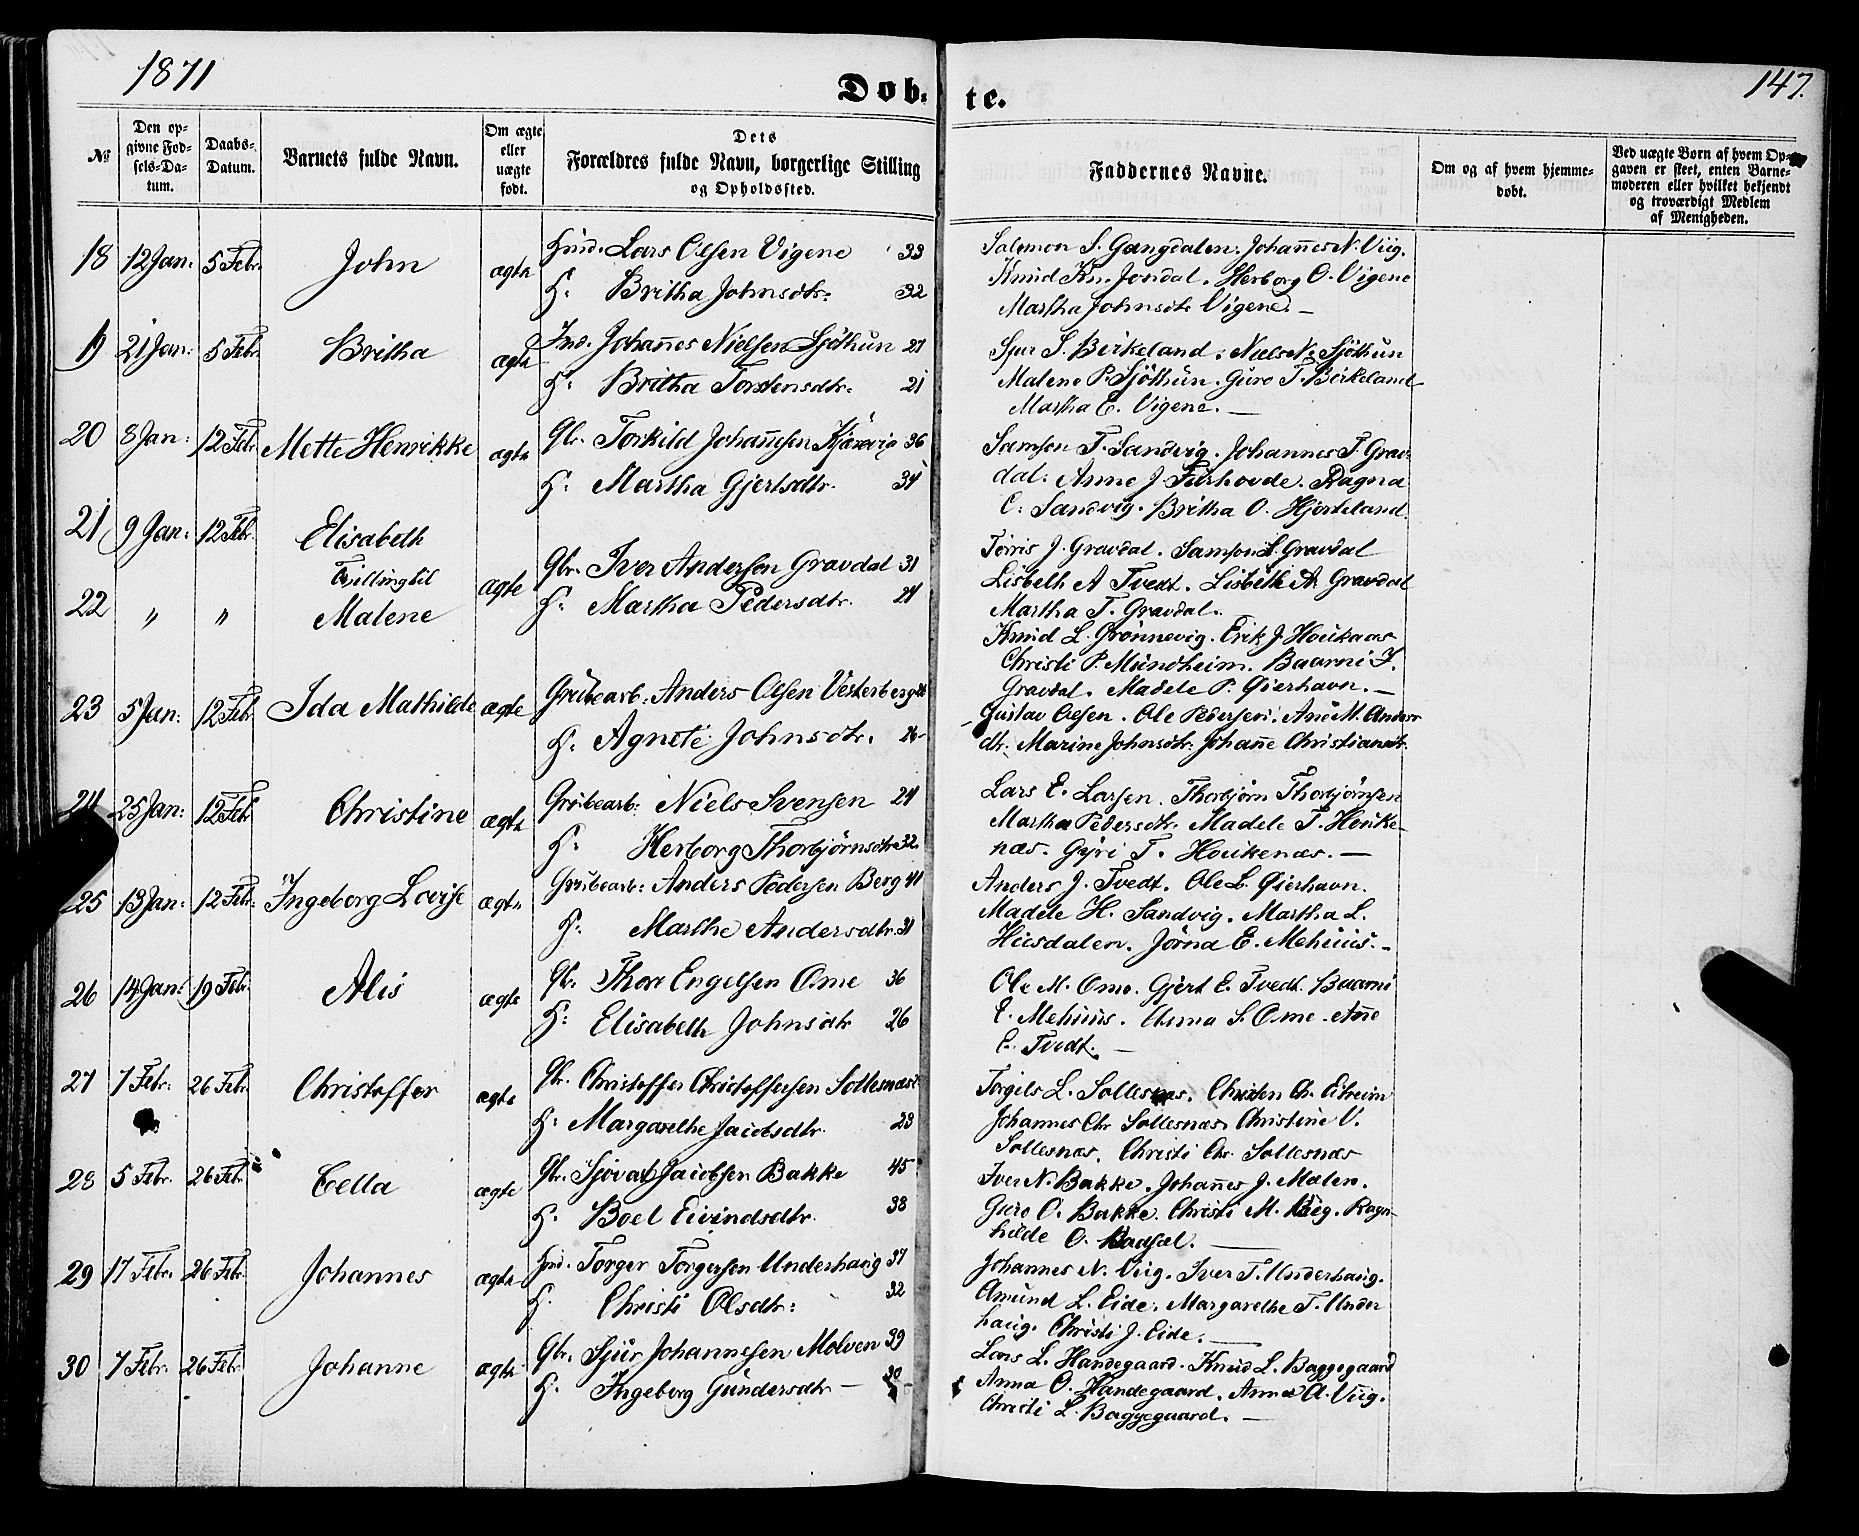 1871
Døb-
te.
147.
№
Den op-
givne Fød-
sels-Da-
tum.
Daabs-
Datum.
Barnets fulde Navn.
Om ægte
eller
uægte
født.
Dets
Forældres fulde Navn, borgerlige Stilling
og Opholdsted.
Faddernes Navne.
Om og af hvem hjemme-
døbt.
Ved uægte Børn af hvem Op-
gaven er skeet, enten Barne-
moderen eller hvilket bekjendt
og troværdigt Medlem
af Menigheden.
18 12 Jan: 5 Febr. John ægte Huusm. Lars Olsen Vigene 33
H: Britha Johnsdtr. 32
Salomon S. Gangdalen. Johannes N. Viig.
Knud Kn. Jondal. Herborg O. Vigene
Martha Johnsdtr Vigene. —
19 21 Jan: 5 Febr. Britha ægte Ind. Johannes Nielsen Sjøthun 27
H: Britha Torstensdtr. 21
Sjur S. Birkeland. Niels N. Sjøthun
Malene P. Sjøthun. Guro T. Birkeland
Martha E. Vigene. —
20 8 Jan: 12 Febr. Mette Henrikke ægte Gbr. Torkild Johannesen Kjærevig 36
H: Martha Gjertsdtr. 34
Samson T. Sandvig. Johannes T. Grav-
dal. Anne J. Furhovde. Ragna
C. Sandvig. Britha O. Hjorteland.
21 9 Jan: 12 Febr. Elisabeth
Tvilling til
22 " " Malene
ægte Gbr. Iver Andersen Gravdal 31
H: Martha Pedersdtr. 27
Torris J. Gravdal. Samson L. Gravdal
Lisbeth A Tvedt. Lisbeth A. Gravdal
Martha T. Gravdal.
Knud L. Grønnevig. Erik J. Houkaas
Christi P. Mundheim. Baarni I.
Gravdal. Madele P. Øierhavn. —
23 5 Jan: 12 Febr Ida Mathilde ægte Grubearb. Anders Olsen Vesterberg 26
H: Agnete Johnsdtr. 26
Gustav Olsen. Ole Pedersen. Ane M. Anders-
dtr. Marine Johnsdtr. Johanne Christiansdtr.
24 25 Jan: 12 Febr Christine ægte Grubearb: Niels Svensen 24
H: Herborg Thorbjørnsdtr 32.
Lars E. Larsen. Thorbjørn Thorbjørnsen
Martha Pedersdtr. Madele T. Houke-
næs. Gyri T. Houkenæs. —
25 13 Jan: 12 Febr. Ingeborg Lovise ægte Grubearb: Anders Pedersen Berg 41
H: Marthe Andersdtr. 31
Anders J. Tvedt. Ole L. Øierhavn.
Madele H. Sandvig. Martha L.
Huusdalen. Jørna E. Mehuus. —
26 14 Jan: 19 Febr. Alis ægte Gbr. Thor Engelsen Ome 36
H: Elisabeth Johnsdtr 26
Ole M. Ome. Gjert E. Tvedt. Baarni
E. Mehuus. Anna S. Ome. Anne
E. Tvedt. —
27 7 Febr: 26 Febr. Christoffer ægte Gbr. Christoffer Christoffersen Sollesnæs
H: Margarethe Jacobsdtr. 23
Torgils L. Sollesnæs. Christen Chr. Eitreim
Johannes Chr Sollesnæs. Christine V.
Sollesnæs. Christi Chr. Sollesnæs
28 5 Febr. 26 Febr. Cella ægte Gbr. Sjovat Jacobsen Bakke 45
H: Boel Eivindsdtr. 38
Iver N. Bakke. Johannes J. Mælen.
Guro O. Bakke. Christi M. Viig. Ragn-
hilde O. Aadsal. —
29 17 Febr. 26 Febr. Johannes ægte Huusm. Torger Torgersen Underhaug 37
H. Christi Olsdtr: 32
Johannes N. Viig. Iver T. Underhaug.
Amund L. Eide. Margarethe T. Under
haug. Christi J. Eide. —
30 7 Febr. 26 Febr. Johanne ægte Gbr. Sjur Johannesen Molven 39
H. Ingeborg Gundersdtr — 30
Lars L. Handegaard. Knud L. Baggegaard
Anna O. Handegaard. Anna A. Viig.
Christi L. Baggegaard. —